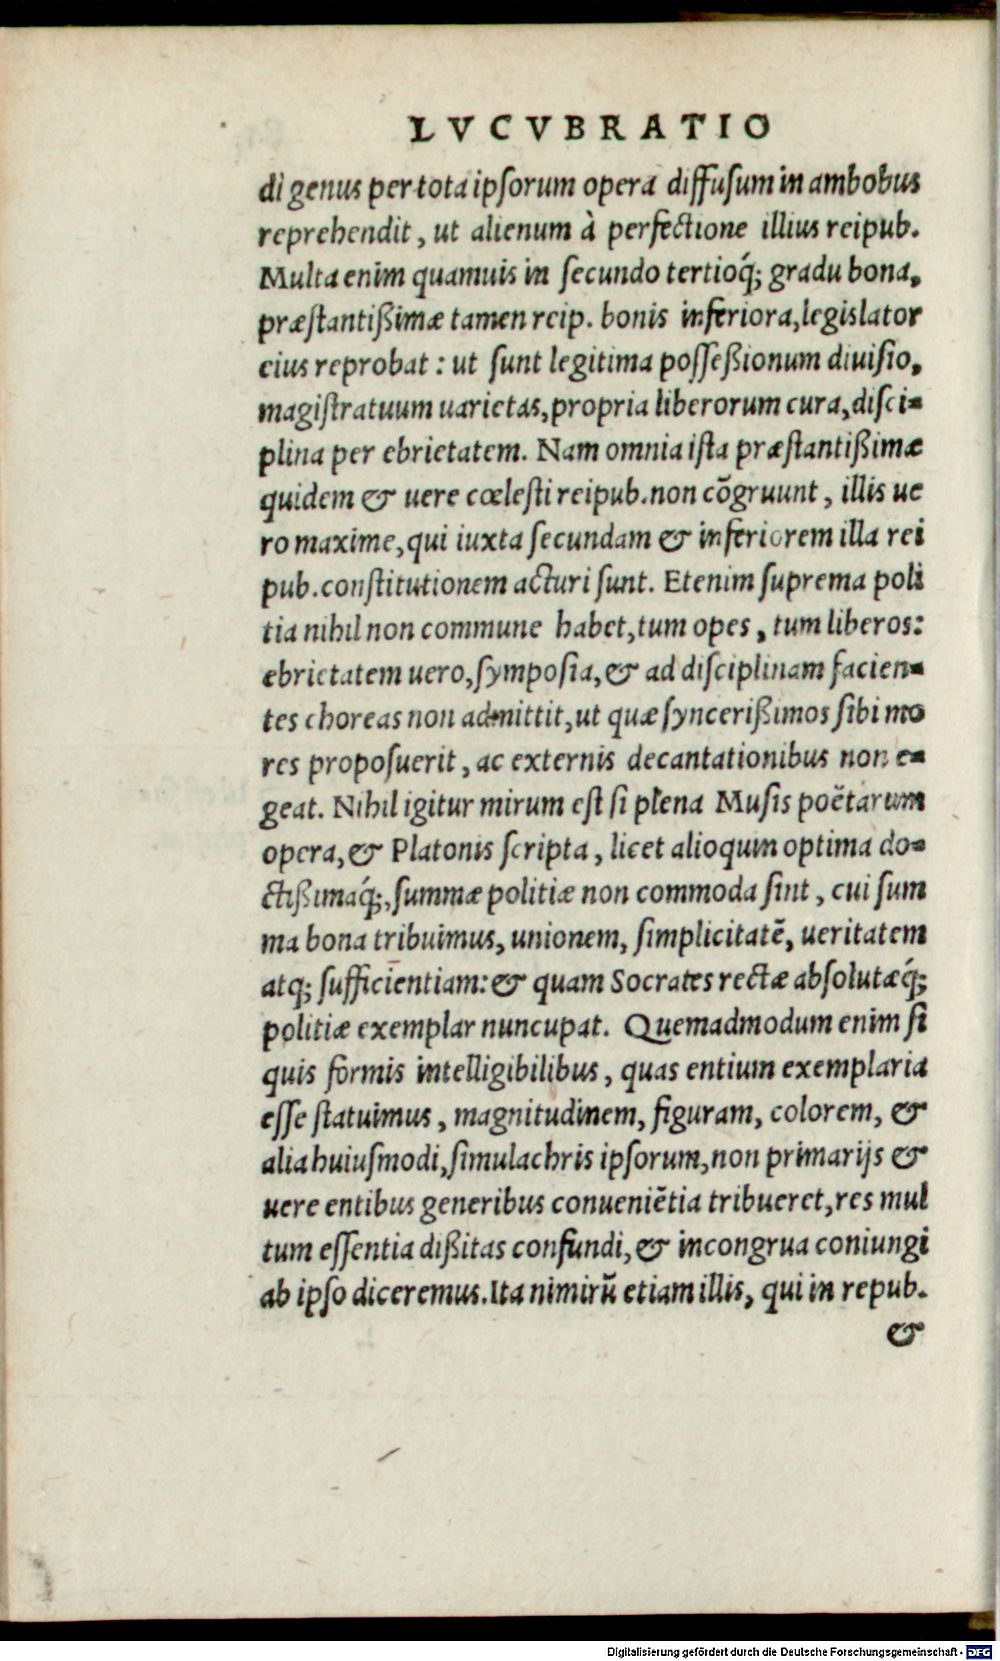 LVCVBRATIO
di genus per tota ipſorum opera diffuſum in ambobus
reprehendit, ut alienum à perfectione illius reipub.
Multa enim quamuis in ſecundo tertioq́; gradu bona,
præſtantißimæ tamen reip. bonis inferiora, legislator
eius reprobat: ut ſunt legitima poſſeßionum diuiſio,
magiſtratuum uarietas, propria liberorum cura, diſci-
plina per ebrietatem. Nam omnia iſta præſtantißimæ
quidem & uere cœleſti reipub. non cōgruunt, illis ue
ro maxime, qui iuxta ſecundam & inferiorem illa rei
pub. conſtitutionem acturi ſunt. Etenim ſuprema poli
tia nihil non commune habet, tum opes, tum liberos:
ebrietatem uero, ſympoſia, & ad diſciplinam facien-
tes choreas non admittit, ut quæ ſyncerißimos ſibi mo
res propoſuerit, ac externis decantationibus non e-
geat. Nihil igitur mirum eſt ſi plena Muſis poëtarum
opera, & Platonis ſcripta, licet alioquin optima do-
ctißimaq́;, ſummæ politiæ non commoda ſint, cui ſum
ma bona tribuimus, unionem, ſimplicitatē, ueritatem
atq; ſufficientiam: & quam Socrates rectæ abſolutæq́;
politiæ exemplar nuncupat. Quemadmodum enim ſi
quis formis intelligibilibus, quas entium exemplaria
eſſe ſtatuimus, magnitudinem, figuram, colorem, &
alia huiuſmodi, ſimulachris ipſorum, non primarijs &
uere entibus generibus conueniētia tribueret, res mul
tum eſſentia dißitas confundi, & incongrua coniungi
ab ipſo diceremus. Ita nimirū etiam illis, qui in repub.
&
Digitalisierung gefördert durch die Deutsche Forschungsgemeinschaft - DFG